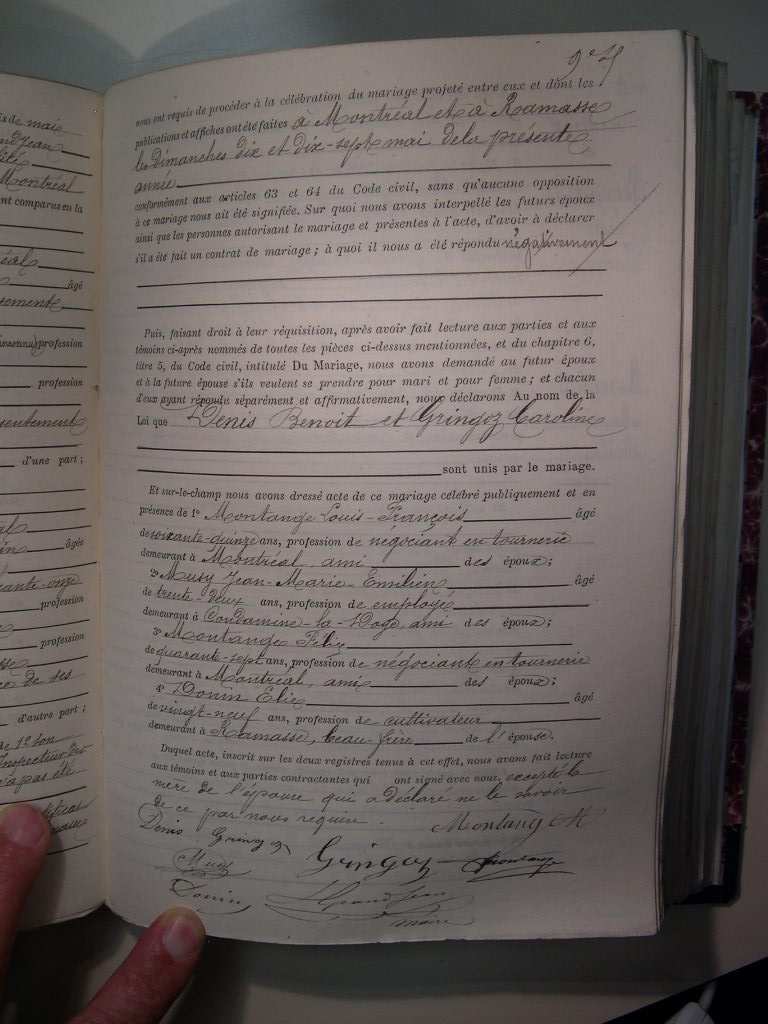 is de mais
and Jean
lité
Montréal
nt comparus en la
éal
âgé
sement
profession
profession
sentement
d'une part ;
al
in âgée
ante-onze
profession
profession
sse
ce de ses
d'autre part ;
nous ont requis de procéder à la célébration du mariage projeté entre eux et dont les
publications et affiches ont été faites à Montréal et à Ramasse
les dimanches dix et dix-sept mai de la présente
année
conformément aux articles 63 et 64 du Code civil, sans qu'aucune opposition
à ce mariage nous ait été signifiée. Sur quoi nous avons interpellé les futurs époux
ainsi que les personnes autorisant le mariage et présentes à l'acte, d'avoir à déclarer
s'il a été fait un contrat de mariage ; à quoi il nous a été répondu négativement
Puis, faisant droit à leur réquisition, après avoir fait lecture aux parties et aux
témoins ci-après nommés de toutes les pièces ci-dessus mentionnées, et du chapitre 6,
titre 5, du Code civil, intitulé Du Mariage, nous avons demandé au futur époux
et à la future épouse s'ils veulent se prendre pour mari et pour femme ; et chacun
d'eux ayant répondu séparément et affirmativement, nous déclarons Au nom de la
Loi que Denis Benoit et Gringoz Caroline
sont unis par le mariage.
Et sur-le-champ nous avons dressé acte de ce mariage célébré publiquement et en
présence de 1° Montange Louis-François âgé
de soixante-quinze ans, profession de négociant en tournerie
demeurant à Montréal, ami des époux ;
2° Musy Jean-Marie-Emilien âgé
de trente-deux ans, profession de employé
demeurant à Condamine-la-Doye, ami des époux ;
3° Montange Félix
de quarante-sept ans, profession de négociant en tournerie
demeurant à Montréal, ami des époux ;
4° Donin Elie âgé
de vingt-neuf ans, profession de cultivateur
demeurant à Ramasse, beau-frère de l'épouse.
Duquel acte, inscrit sur les deux registres tenus à cet effet, nous avons fait lecture
aux témoins et aux parties contractantes qui ont signé avec nous, excepté la
mère de l'épouse qui a déclaré ne le savoir
de ce par nous requise.
Denis Gringoz Montange
Musy Gringoz Montange
Donin Grandjean
maire